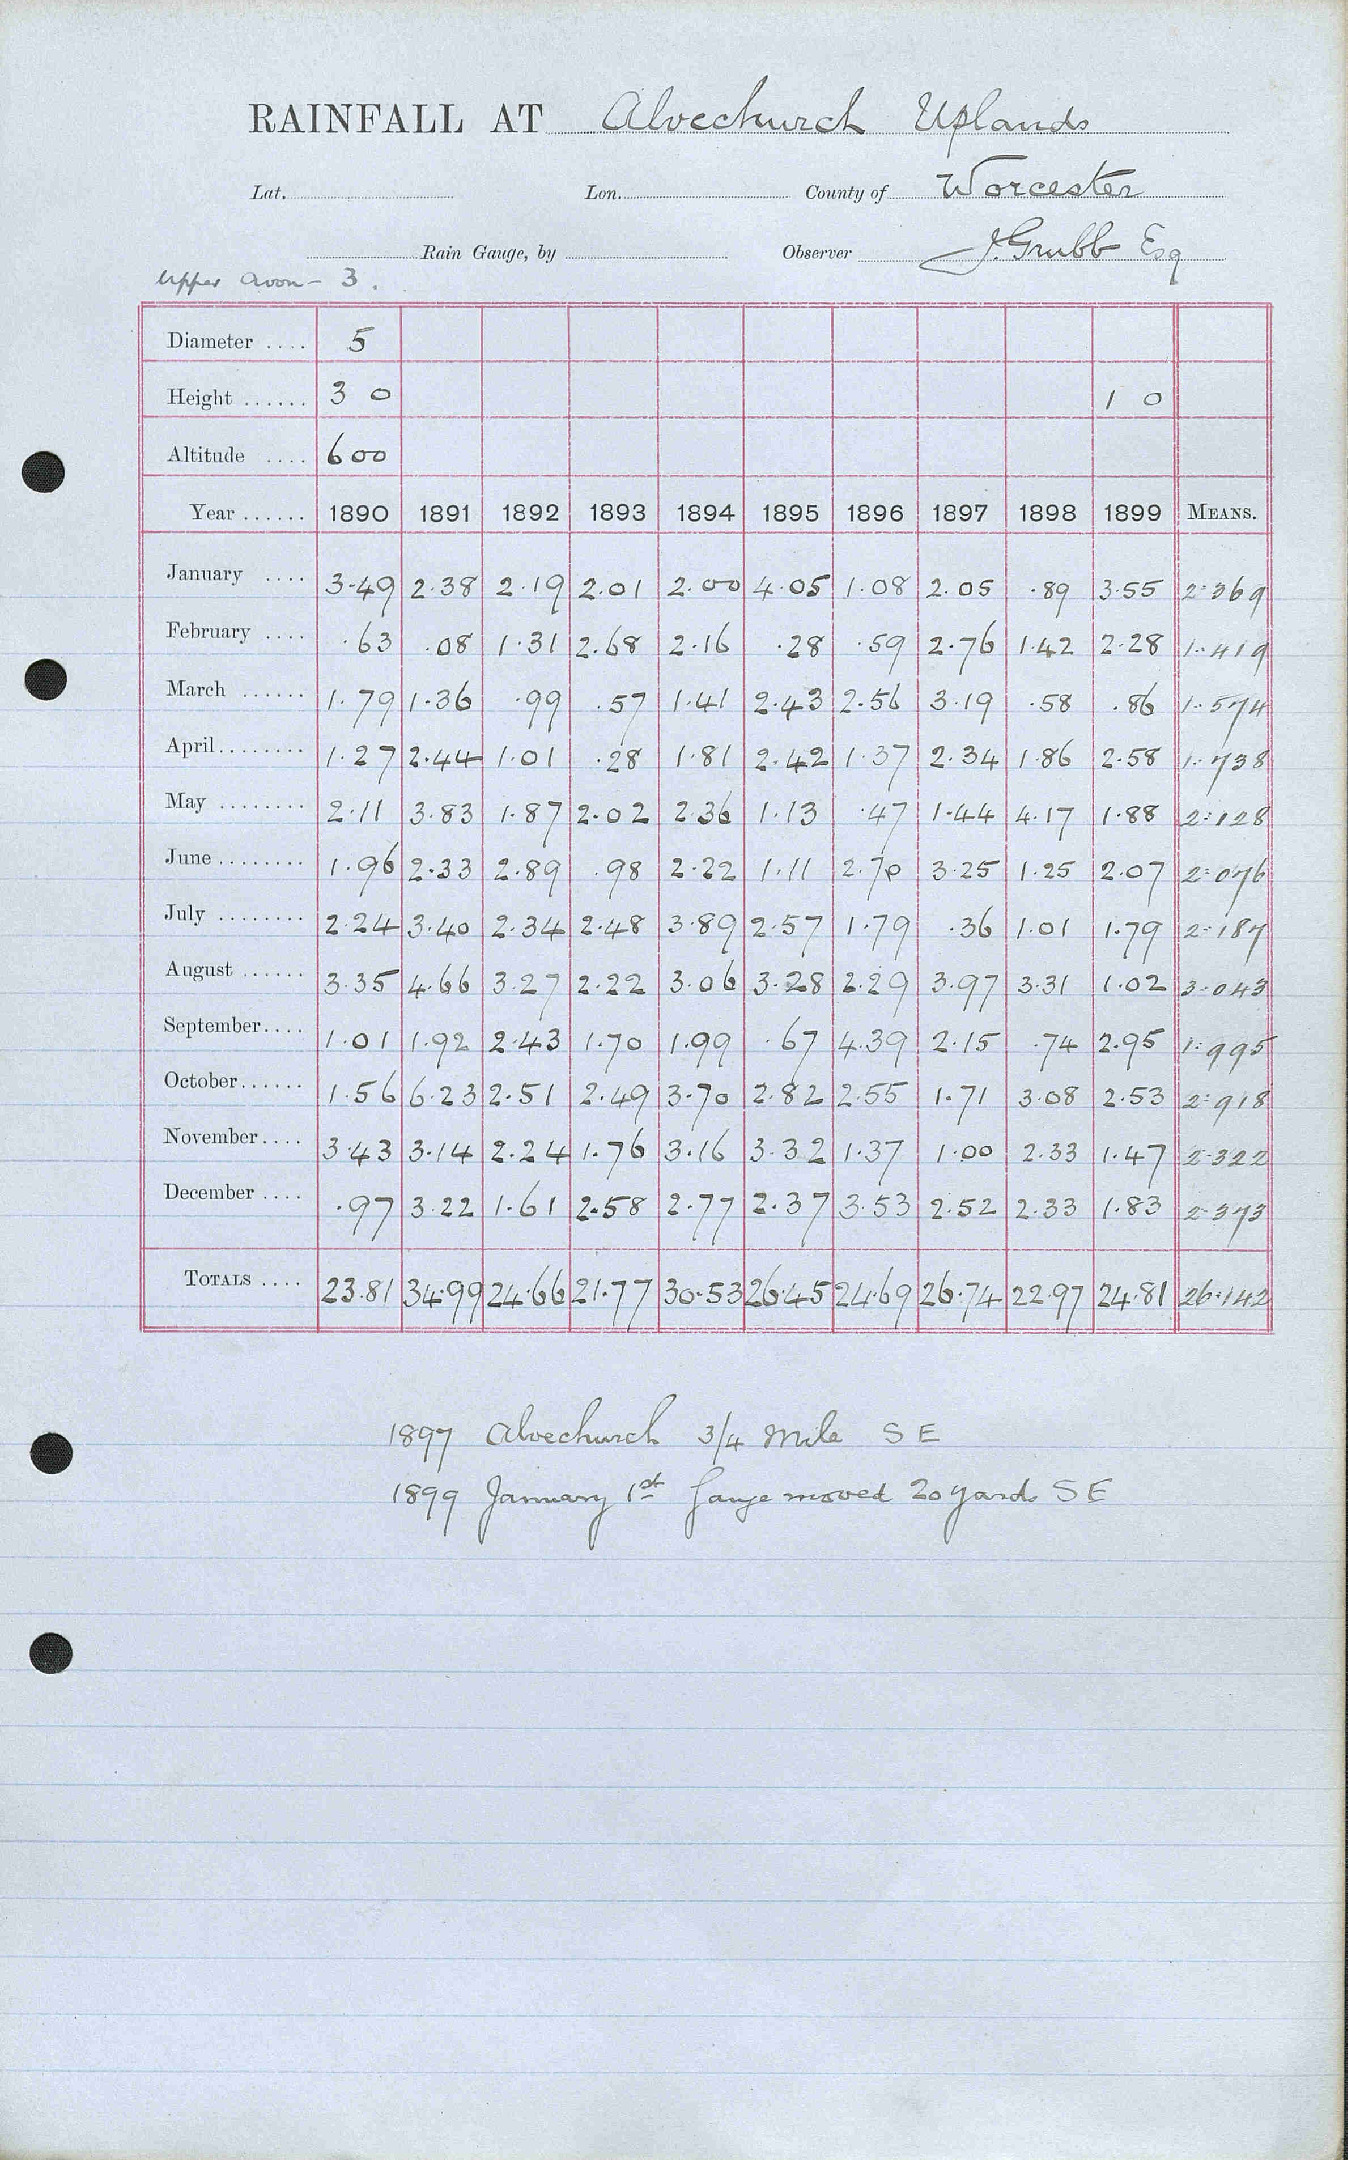 RAINFALL AT Alvechurch Uplands
Lat. Lon. County of Worcester
Rain Gauge, by Observer J. Grubb Esq
Upper Avon - 3.
Diameter .... 5
Height ...... 3 0 1 0
Altitude .... 600
Year ...... 1890 1891 1892 1893 1894 1895 1896 1897 1898 1899 MEANS.
January .... 3.49 2.38 2.19 2.01 2.00 4.05 1.08 2.05 .89 3.55 2.369
February .... .63 .08 1.31 2.68 2.16 .28 .59 2.76 1.42 2.28 1.419
March ...... 1.79 1.36 .99 .57 1.41 2.43 2.56 3.19 .58 .86 1.574
April........ 1.27 2.44 1.01 .28 1.81 2.42 1.37 2.34 1.86 2.58 1.738
May ........ 2.11 3.83 1.87 2.02 2.36 1.13 .47 1.44 4.17 1.88 2.128
June ........ 1.96 2.33 2.89 .98 2.22 1.11 2.70 3.25 1.25 2.07 2.076
July ........ 2.24 3.40 2.34 2.48 3.89 2.57 1.79 .36 1.01 1.79 2.187
August ...... 3.35 4.66 3.27 2.22 3.06 3.28 2.29 3.97 3.31 1.02 3.043
September.... 1.01 1.92 2.43 1.70 1.99 .67 4.39 2.15 .74 2.95 1.995
October...... 1.56 6.23 2.51 2.49 3.70 2.82 2.55 1.71 3.08 2.53 2.918
November.... 3.43 3.14 2.24 1.76 3.16 3.32 1.37 1.00 2.33 1.47 2.322
December .... .97 3.22 1.61 2.58 2.77 2.37 3.53 2.52 2.33 1.83 2.373
TOTALS .... 23.81 34.99 24.66 21.77 30.53 26.45 24.69 26.74 22.97 24.81 26.142
1897 Alvechurch 3/4 mile SE
1899 January 1st Gauge moved 20 yards SE